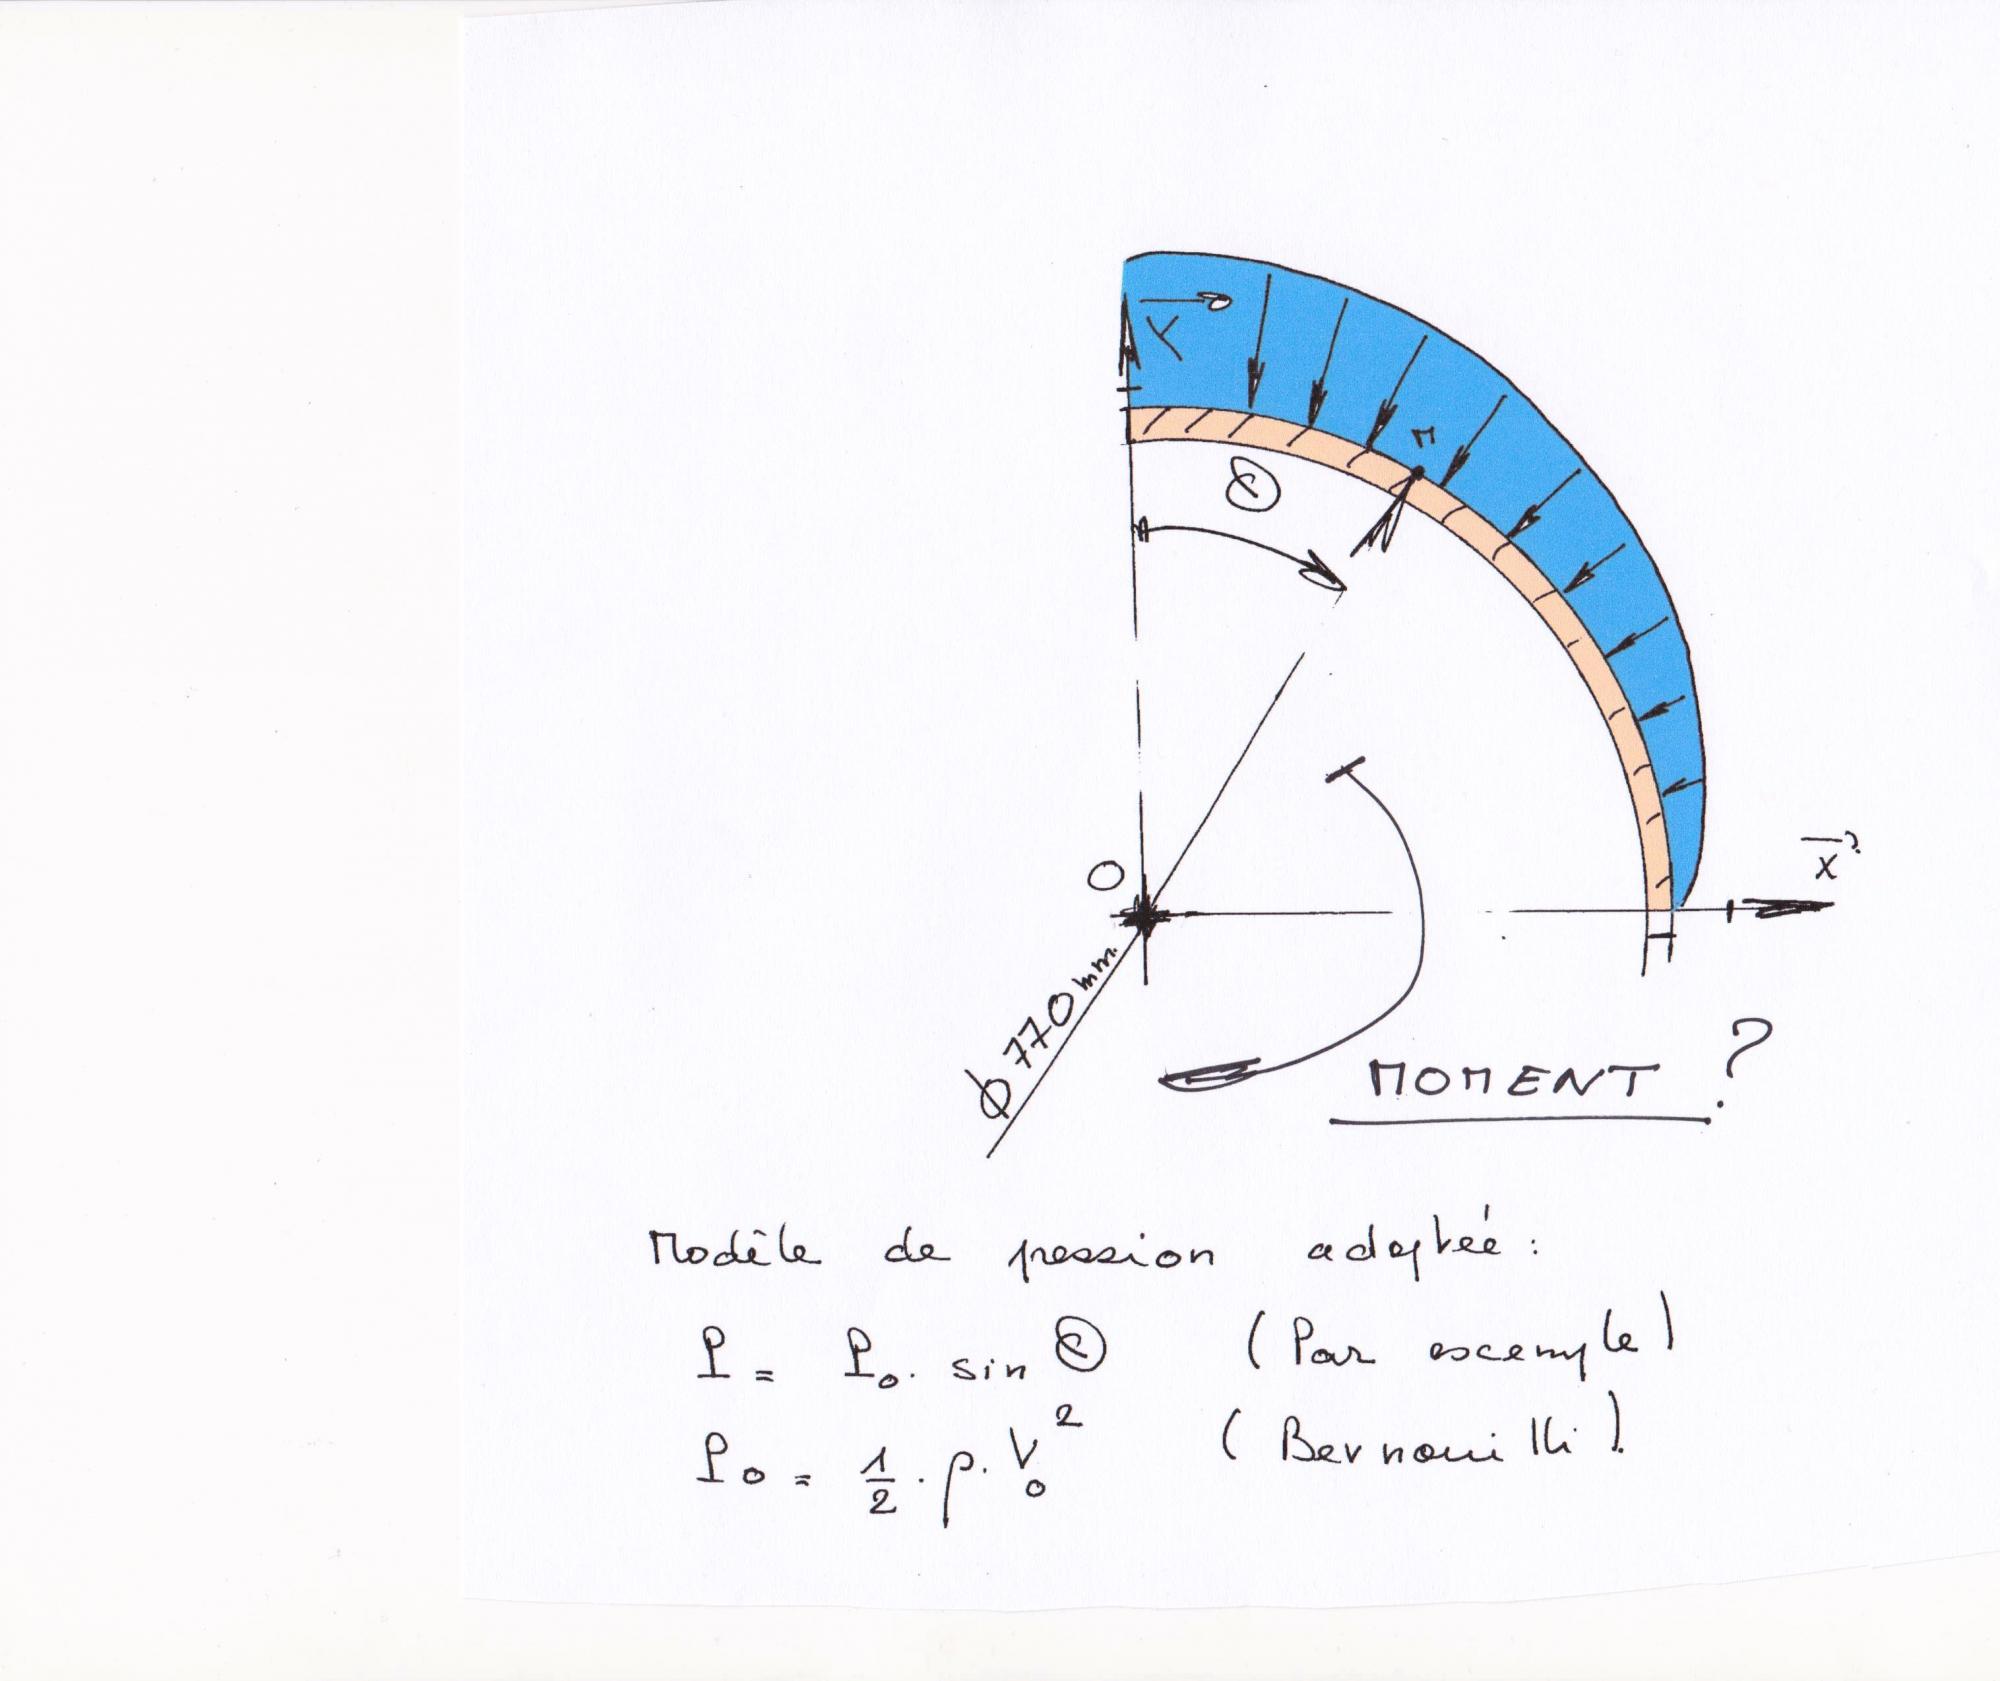 Y
M
Θ
O
X
ϕ 770 mm.
MOMENT ?
Modèle de pression adoptée :
P = P₀. sin Θ (Par exemple)
P₀ = 1/2 . ρ. V₀² (Bernouilli).